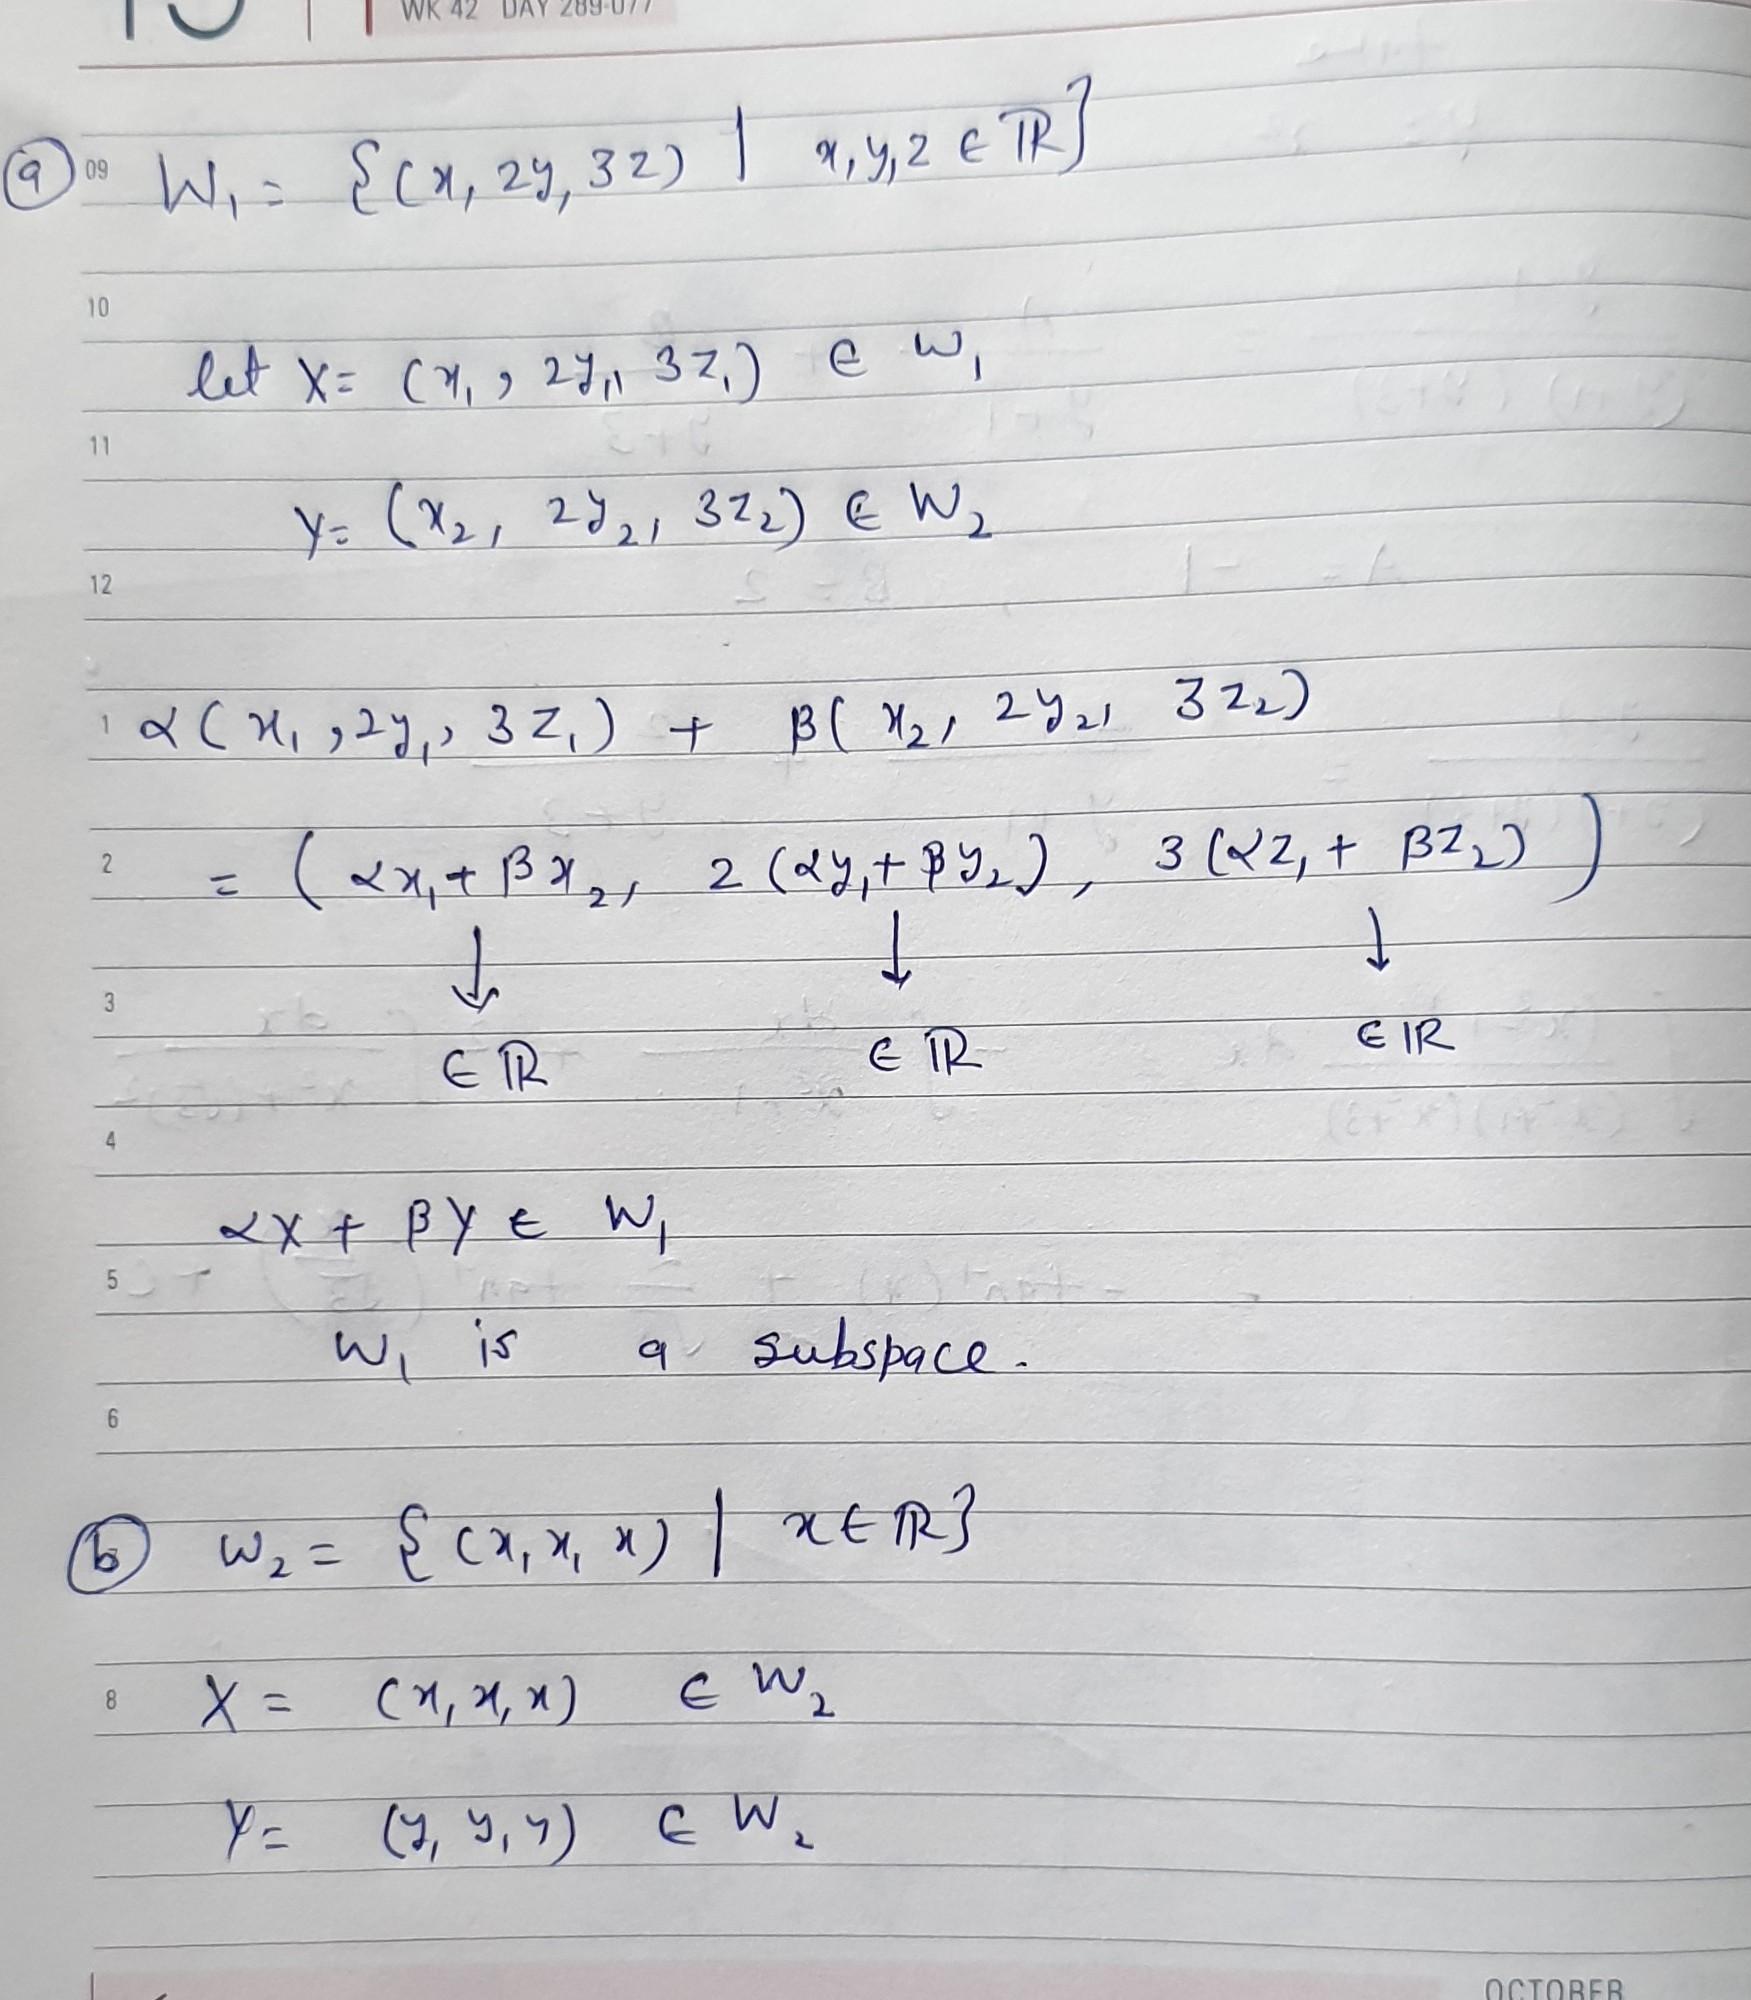 WK 42 DAY 289-077
(a) 09 W₁ = {(x, 2y, 3z) | x,y,z ∈ ℝ}
10
let X = (x₁, 2y₁, 3z₁) ∈ W₁
11
Y = (x₂, 2y₂, 3z₂) ∈ W₂
12
1 α(x₁, 2y₁, 3z₁) + β(x₂, 2y₂, 3z₂)
2 = (αx₁ + βx₂, 2(αy₁ + βy₂), 3(αz₁ + βz₂))
↓ ↓ ↓
3
∈ ℝ ∈ ℝ ∈ ℝ
4
αX + βY ∈ W₁
5
W₁ is a subspace.
6
(b) W₂ = {(x, x, x) | x ∈ ℝ}
8 X = (x, x, x) ∈ W₂
Y = (y, y, y) ∈ W₂
OCTOBER